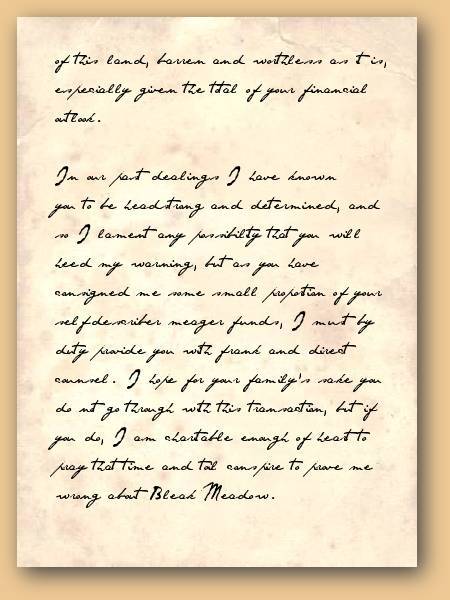 of this land, barren and worthless as it is,
especially given the total of your financial
outlook.
In our past dealings I have known
you to be headstrong and determined, and
so I lament any possibilty that you will
heed my warning, but as you have
consigned me some small propotion of your
selfdescriber meager funds, I must by
duty provide you with frank and direct
counsel. I hope for your family's sake you
do not go through with this transaction, but if
you do, I am chartable enough of heart to
pray that time and toil conspire to prove me
wrong about Bleak Meadow.